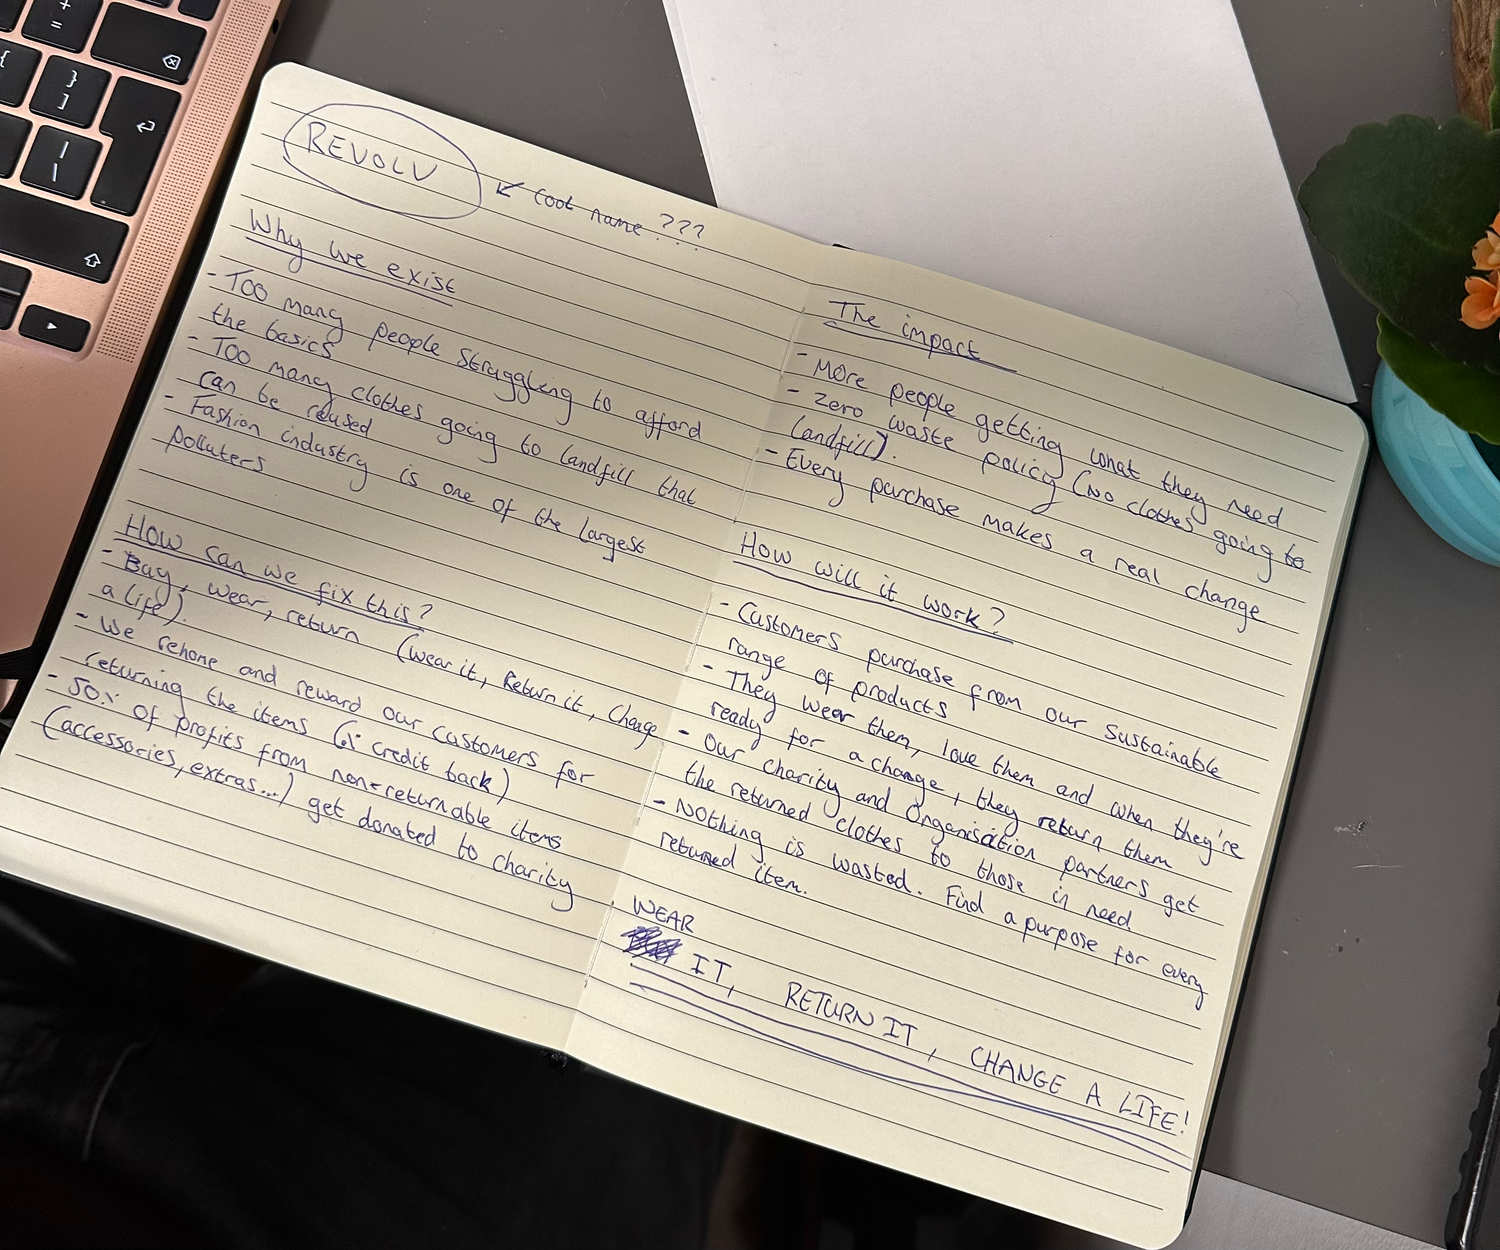 REVOLV
↙ Cool name ???
Why we exist
- Too many people struggling to afford
the basics
- Too many clothes going to landfill that
can be reused
- Fashion industry is one of the largest
polluters
How can we fix this?
- Buy, wear, return (wear it, Return it, Change
a life).
- We rehome and reward our customers for
returning the items ( credit back)
- 50% of profits from non-returnable items
(accessories, extras...) get donated to charity
The impact
- More people getting what they need
- Zero waste policy (No clothes going to
landfill).
- Every purchase makes a real change
How will it work?
- Customers purchase from our sustainable
range of products
- They wear them, love them and when they're
ready for a change, they return them
- Our charity and organisation partners get
the returned clothes to those in need
- Nothing is wasted. Find a purpose for every
returned item.
WEAR
IT, RETURN IT, CHANGE A LIFE!